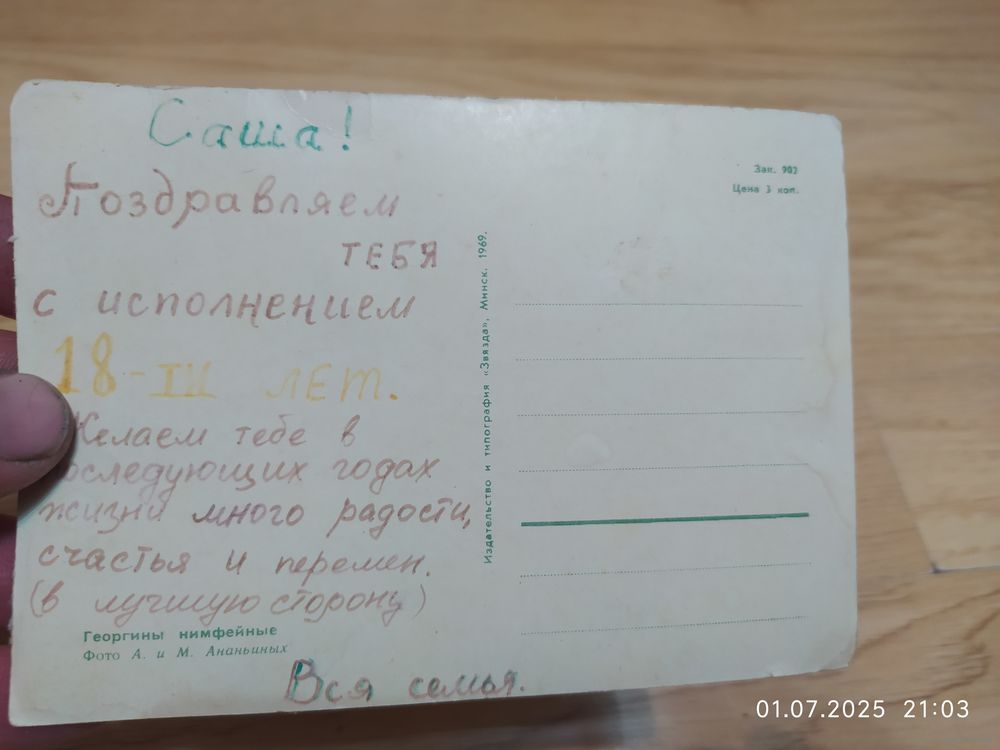 Саша!
Поздравляем
ТЕБЯ
с исполнением
18-ТИ ЛЕТ.
Желаем тебе в
последующих годах
жизни много радости,
счастья и перемен.
(в лучшую сторону)
Георгины нимфейные
Фото А. и М. Ананьиных
Вся семья.
Издательство и типография «Звязда», Минск. 1969.
Зак. 902
Цена 3 коп.
01.07.2025 21:03